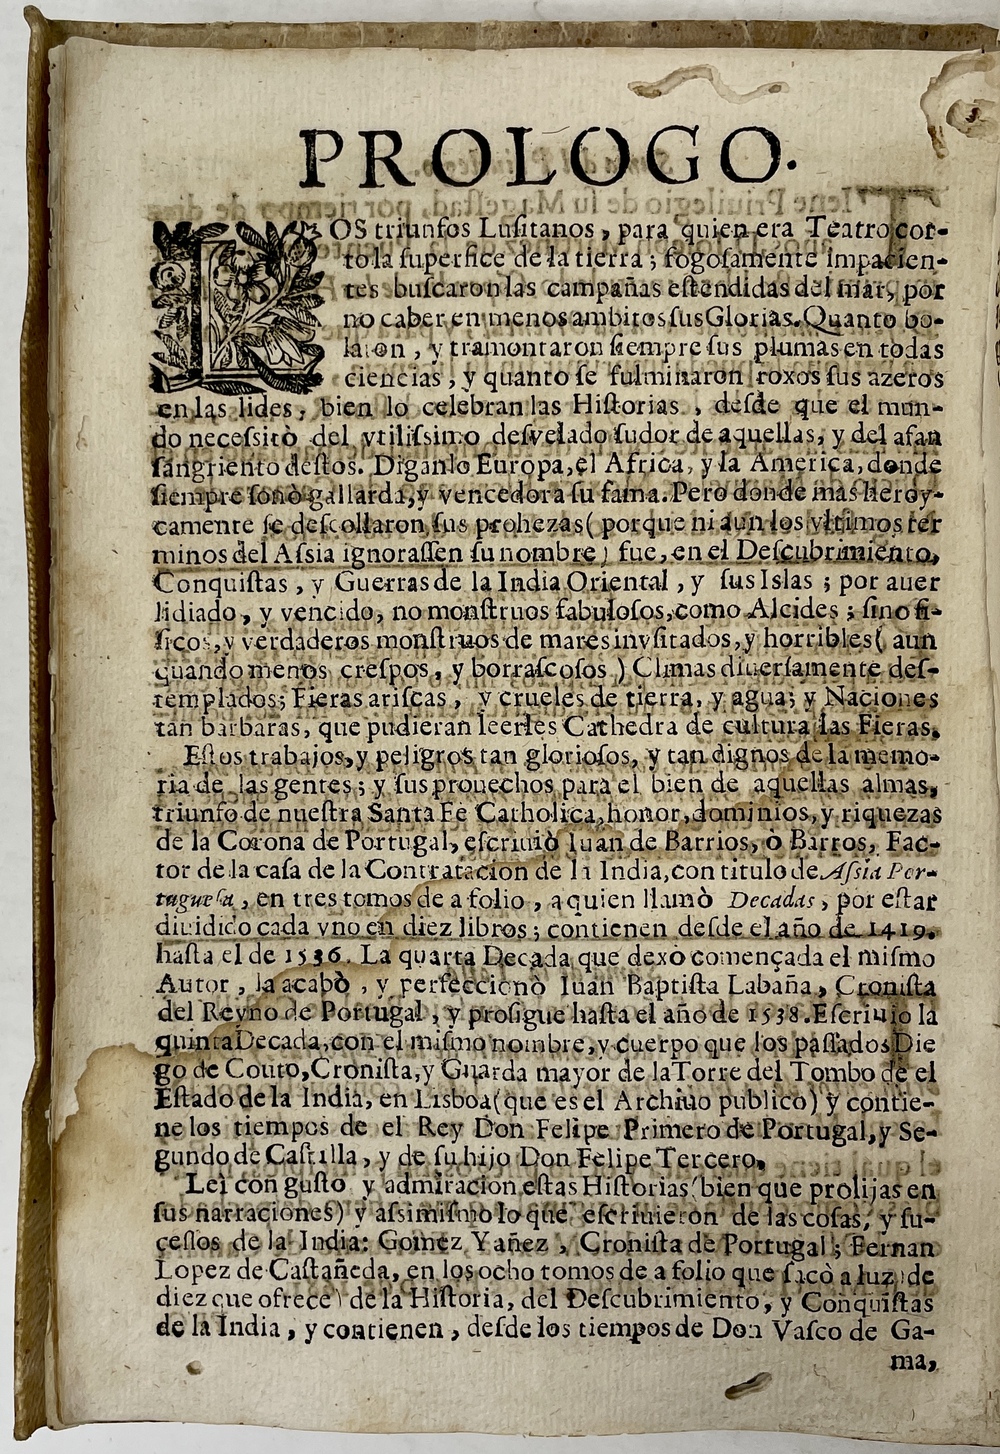 PROLOGO.
LOS triunfos Lusitanos, para quien era Teatro cor-
to la superfice de la tierra; fogosamente impacien-
tes buscaron las campañas estendidas del mar, por
no caber en menos ambitos sus Glorias. Quanto bo-
laron, y tramontaron siempre sus plumas en todas
ciencias, y quanto se fulminaron roxos sus azeros
en las lides, bien lo celebran las Historias, desde que el mun-
do necessitò del vtilissimo desvelado sudor de aquellas, y del afan
sangriento destos. Diganlo Europa, el Africa, y la America, donde
siempre sonò gallarda, y vencedora su fama. Pero donde mas heroy-
camente se descollaron sus prohezas (porque ni aun los vltimos ter
minos del Assia ignorassen su nombre) fue, en el Descubrimiento,
Conquistas, y Guerras de la India Oriental, y sus Islas; por auer
lidiado, y vencido, no monstruos fabulosos, como Alcides; sino fi-
sicos, y verdaderos monstruos de mares invsitados, y horribles (aun
quando menos crespos, y borrascosos) Climas diuersamente des-
templados; Fieras ariscas, y crueles de tierra, y agua; y Naciones
tan barbaras, que pudieran leerles Cathedra de cultura las Fieras.
Estos trabajos, y peligros tan gloriosos, y tan dignos de la memo-
ria de las gentes; y sus prouechos para el bien de aquellas almas,
triunfo de nuestra Santa Fe Catholica, honor, dominios, y riquezas
de la Corona de Portugal, escriuiò Iuan de Barrios, ò Barros, Fac-
tor de la casa de la Contratacion de la India, con titulo de Assia Por-
tuguesa, en tres tomos de a folio, a quien llamò Decadas, por estar
diuidido cada vno en diez libros; contienen desde el año de 1419.
hasta el de 1536. La quarta Decada que dexò començada el mismo
Autor, la acabò, y perfeccionò Iuan Baptista Labaña, Cronista
del Reyno de Portugal, y prosigue hasta el año de 1538. Escriuio la
quinta Decada, con el mismo nombre, y cuerpo que los passados Die
go de Couto, Cronista, y Guarda mayor de la Torre del Tombo de el
Estado de la India, en Lisboa (que es el Archiuo publico) y contie-
ne los tiempos de el Rey Don Felipe Primero de Portugal, y Se-
gundo de Castilla, y de su hijo Don Felipe Tercero.
Lei con gusto y admiracion estas Historias (bien que prolijas en
sus narraciones) y assimismo lo que escriuieron de las cosas, y su-
cessos de la India: Gomez Yañez, Cronista de Portugal; Fernan
Lopez de Castañeda, en los ocho tomos de a folio que sacò a luz (de
diez que ofrece) de la Historia, del Descubrimiento, y Conquistas
de la India, y contienen, desde los tiempos de Don Vasco de Ga-
ma,